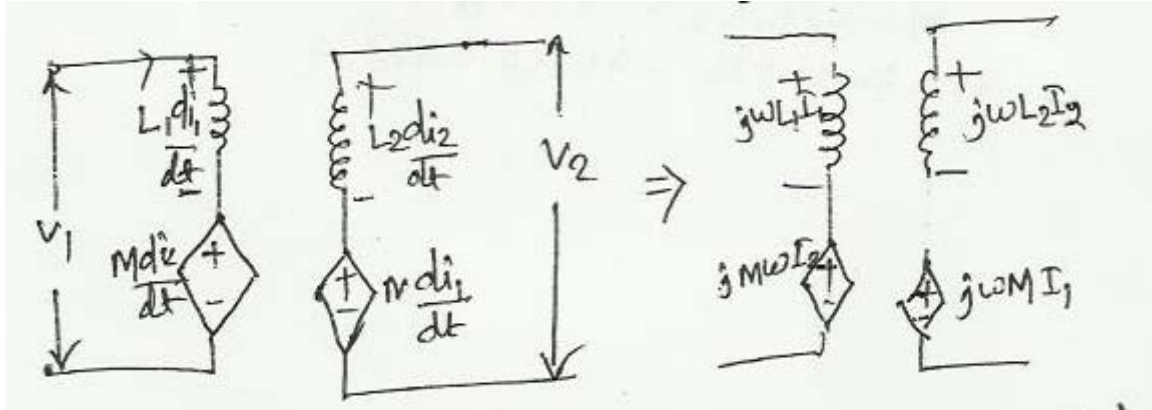 V1
+
L1 di1
dt
-
M di2
dt
+
-
+
L2 di2
dt
-
+
-
M di1
dt
V2
⇒
+
jωL1I1
-
jMωI2
+
-
+
jωL2I2
-
+
-
jωM I1